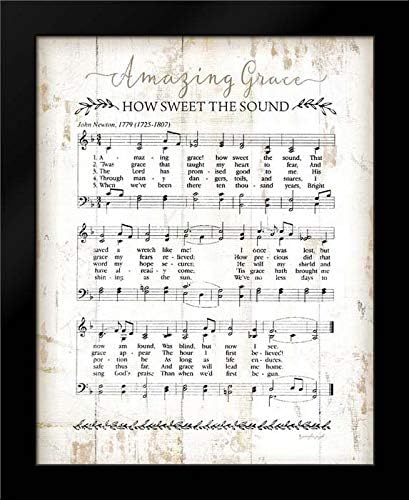 Amazing Grace
HOW SWEET THE SOUND
John Newton, 1779 (1725-1807)
1. A - maz - ing grace! how sweet the sound, That
2. 'Twas grace that taught my heart to fear, And
3. The Lord has prom - ised good to me. His
4. Through man - y dan - gers, toils, and snares, I
5. When we've been there ten thou - sand years, Bright
saved a wretch like me! I once was lost, but
grace my fears re - lieved; How pre - cious did that
word my hope se - cures; He will my shield and
have al - read - y come; 'Tis grace hath brought me
shin - ing as the sun, We've no less days to
now am found, Was blind, but now I see.
grace ap - pear The hour I first be - lieved!
por - tion be As long as life en - dures.
safe thus far, And grace will lead me home.
sing God's praise Than when we'd first be - gun.